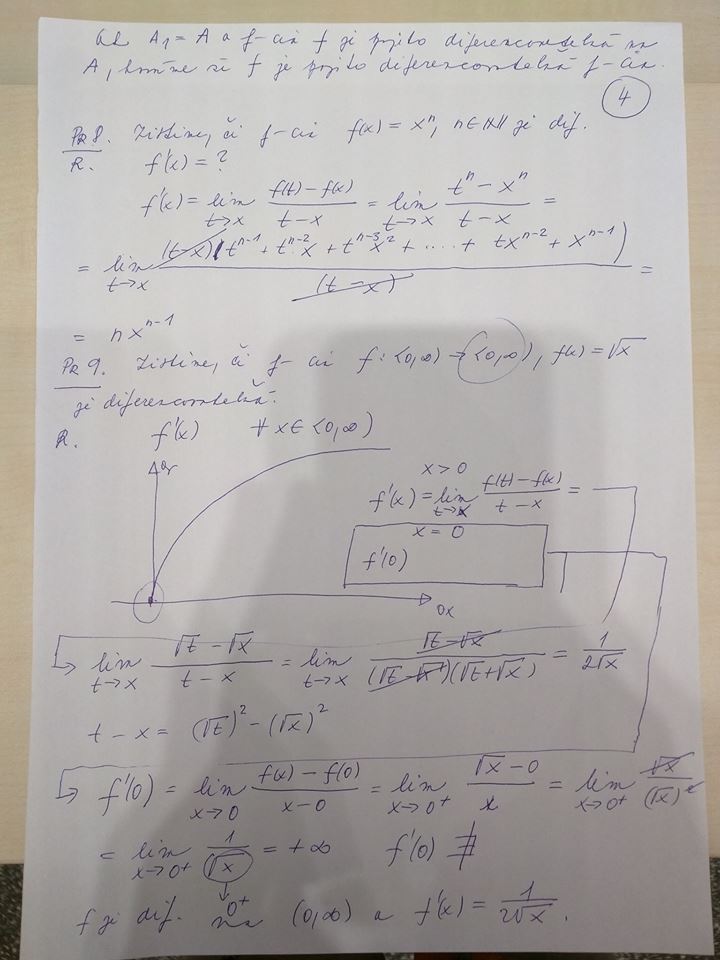 Ak A₁ = A a f-cia f je pojito diferencovateľná na
A, hovoríme že f je pojito diferencovateľná f-cia.
4
PR 8. Zistime, či f-cia f(x) = xⁿ, n∈ℕ je dif.
R. f'(x) = ?
f'(x) = lim_{t→x} (f(t) − f(x))/(t − x) = lim_{t→x} (tⁿ − xⁿ)/(t − x) =
= lim_{t→x} (t−x)(tⁿ⁻¹ + tⁿ⁻²x + tⁿ⁻³x² + .... + txⁿ⁻² + xⁿ⁻¹)/(t − x) =
= nxⁿ⁻¹
PR 9. Zistime, či f-cia f: <0,∞) → <0,∞), f(x) = √x
je diferencovateľná.
R. f'(x) ∀x∈<0,∞)
x > 0
f'(x) = lim_{t→x} (f(t) − f(x))/(t − x) =
x = 0
f'(0)
0x
lim_{t→x} (√t − √x)/(t − x) = lim_{t→x} (√t − √x)/((√t − √x)(√t + √x)) = 1/(2√x)
t − x = (√t)² − (√x)²
f'(0) = lim_{x→0} (f(x) − f(0))/(x − 0) = lim_{x→0⁺} (√x − 0)/x = lim_{x→0⁺} √x/(√x)²
= lim_{x→0⁺} 1/√x = +∞ f'(0) ∄
0⁺
f je dif. na (0,∞) a f'(x) = 1/(2√x).